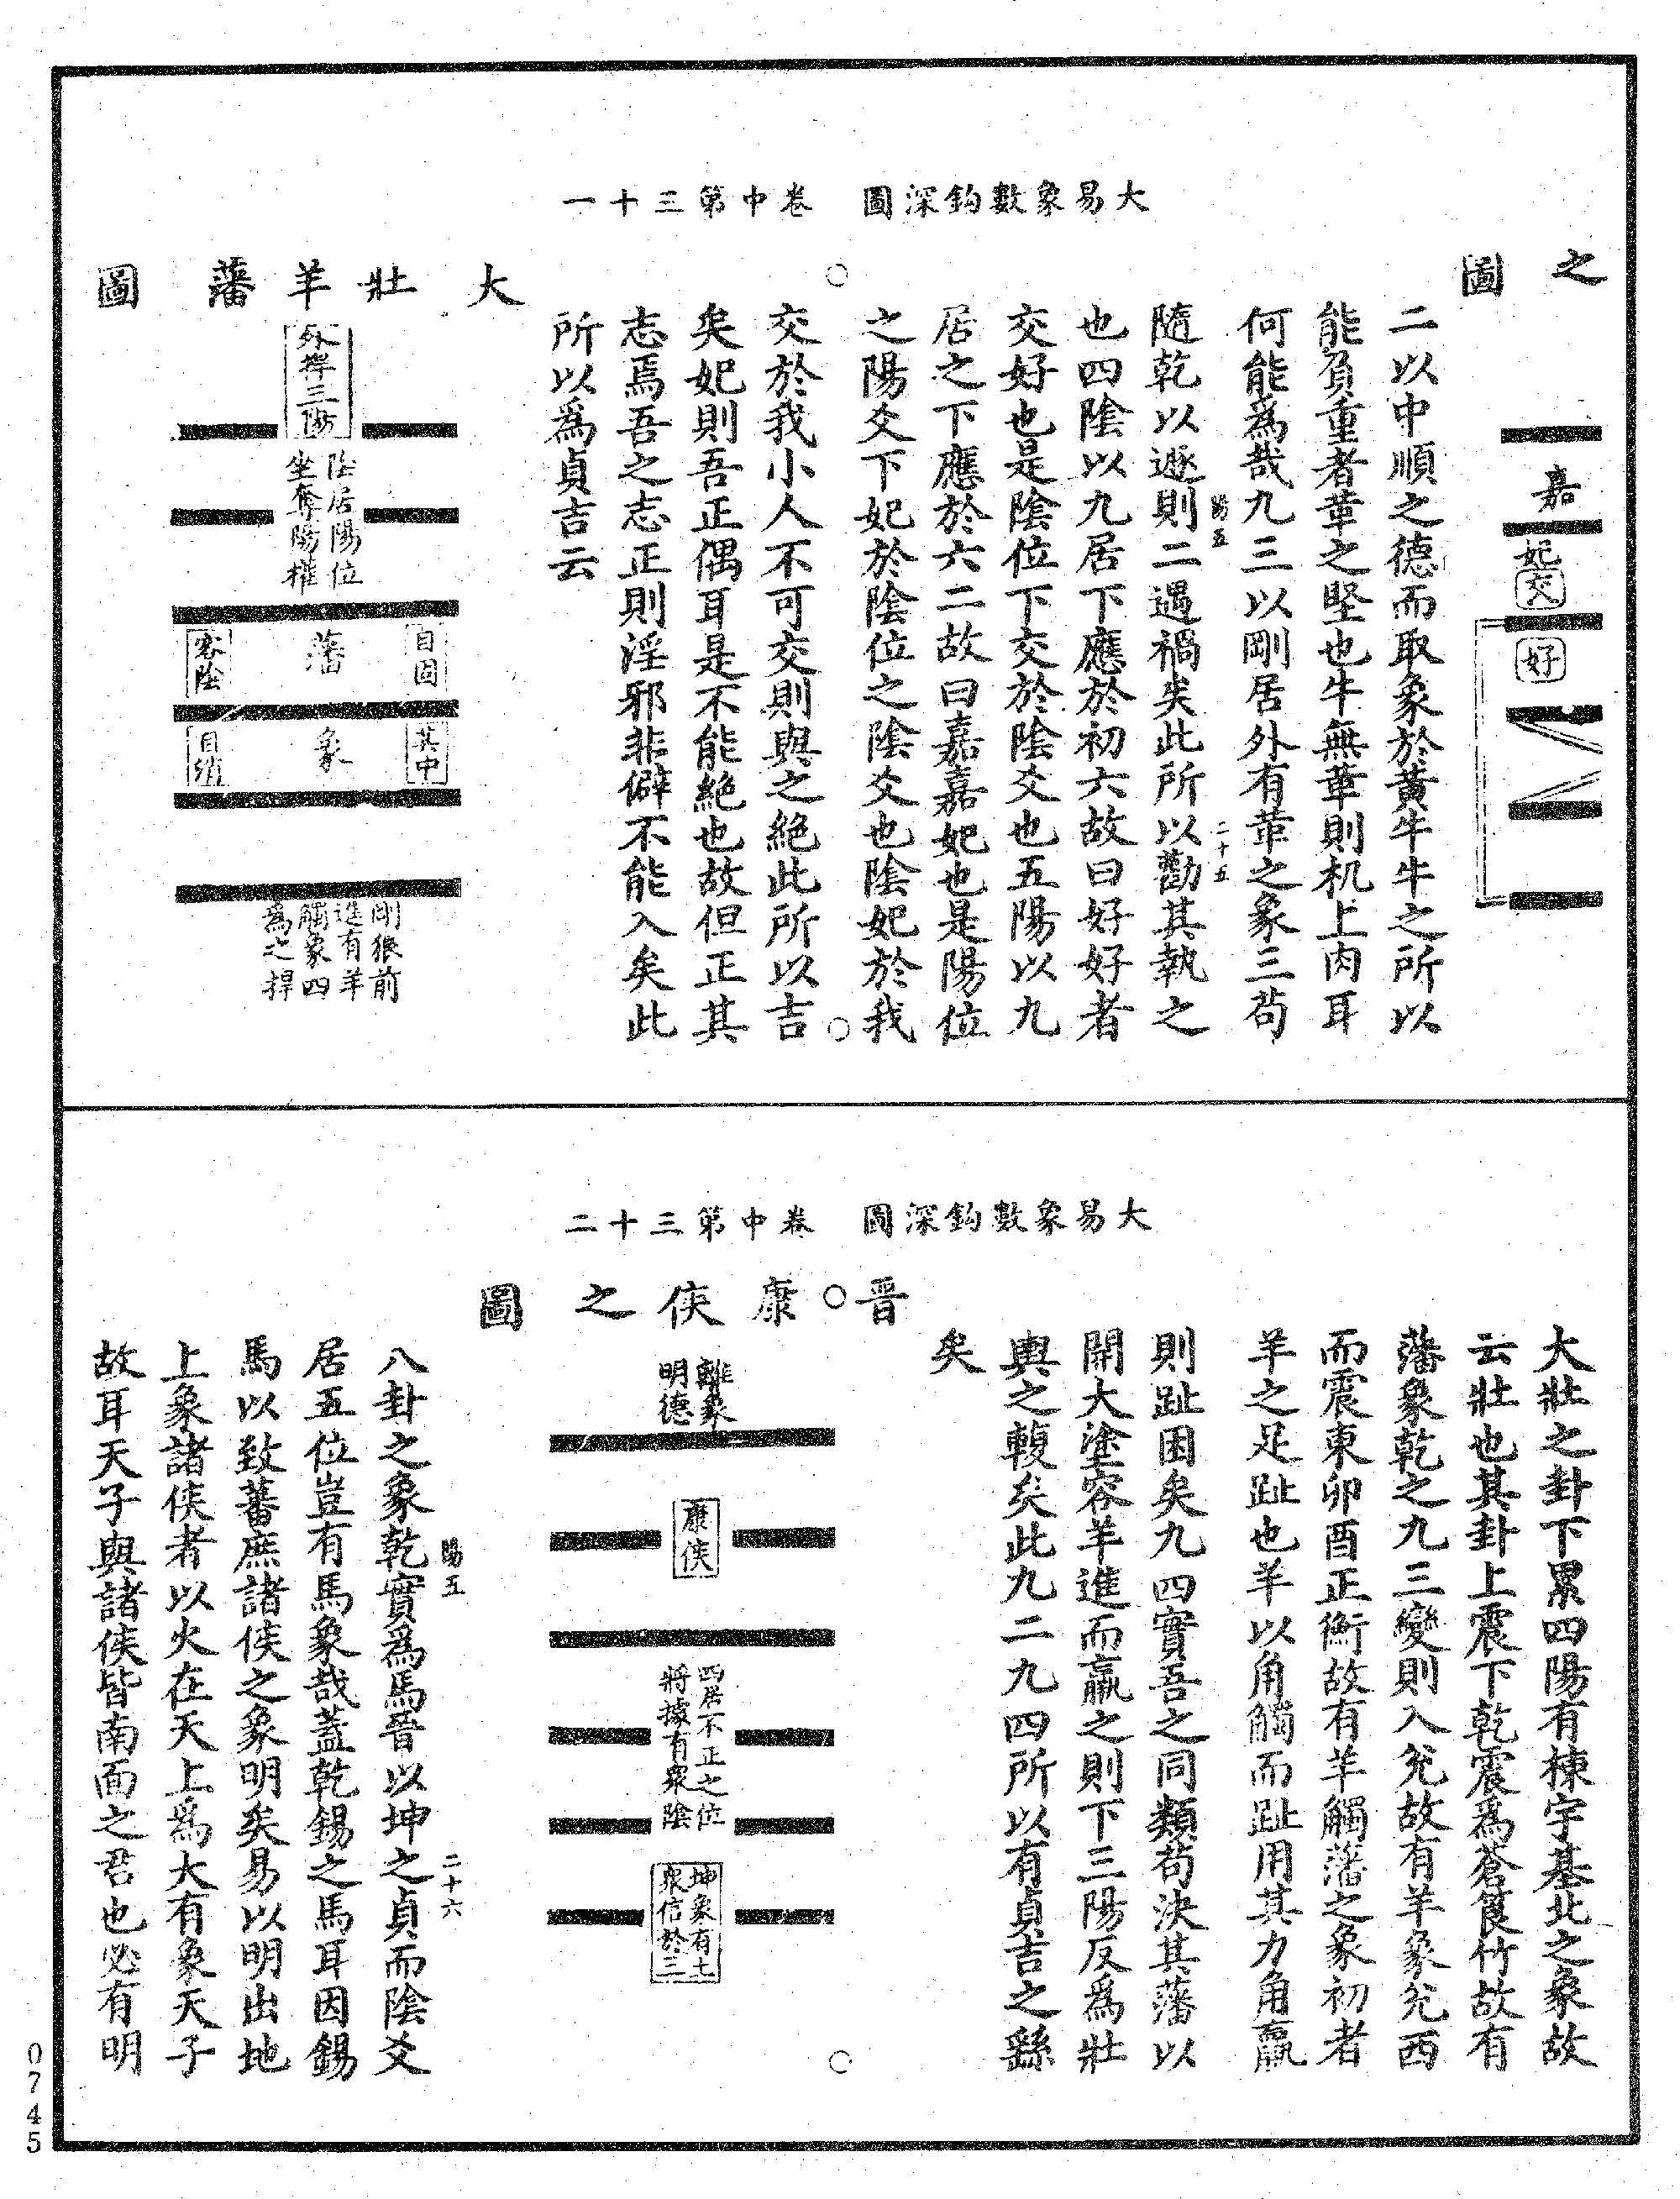 大易象數鈎深圖 卷中第三十一
之
圖
嘉
妃
交
好
二以中順之德而取象於黃牛牛之所以
能負重者革之堅也牛無革則机上肉耳
何能為哉九三以剛居外有革之象三苟
陽五 二十五
隨乾以遯則二遇禍矣此所以勸其執之
也四陰以九居下應於初六故曰好好者
交好也是陰位下交於陰爻也五陽以九
居之下應於六二故曰嘉嘉妃也是陽位
之陽爻下妃於陰位之陰爻也陰妃於我
交於我小人不可交則與之絶此所以吉
矣妃則吾正偶耳是不能絶也故但正其
志焉吾之志正則淫邪非僻不能入矣此
所以為貞吉云
大壯羊藩圖
外捍三陽
陰居陽位
坐奪陽權
自固
藩
客陰
其中
象
自消
剛狠前
進有羊
觸象四
為之捍
大易象數鈎深圖 卷中第三十二
大壯之卦下累四陽有棟宇基北之象故
云壯也其卦上震下乾震為蒼筤竹故有
藩象乾之九三變則入兊故有羊象兊西
而震東卯酉正衝故有羊觸藩之象初者
羊之足趾也羊以角觸而趾用其力角羸
則趾困矣九四實吾之同類苟決其藩以
開大塗容羊進而羸之則下三陽反為壯
輿之輹矣此九二九四所以有貞吉之繇
矣
晉康侯之圖
離象
明德
康侯
四居不正之位
將據有衆陰
坤象有土
衆信於三
陽五 二十六
八卦之象乾實為馬晉以坤之貞而陰爻
居五位豈有馬象哉蓋乾錫之馬耳因錫
馬以致蕃庶諸侯之象明矣易以明出地
上象諸侯者以火在天上為大有象天子
故耳天子與諸侯皆南面之君也必有明
0745